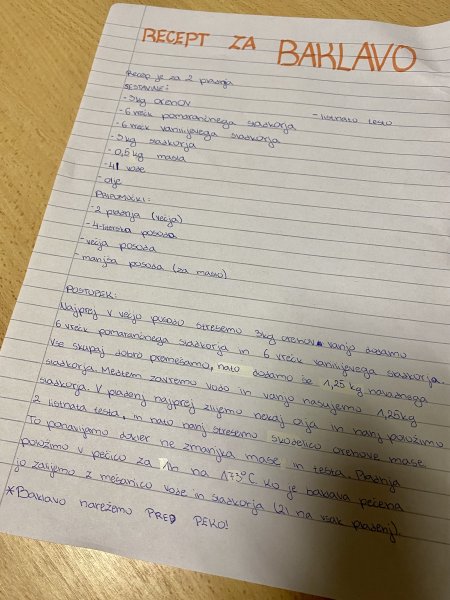 RECEPT ZA BAKLAVO
Recep je za 2 pladnja
SESTAVINE:
- 3kg orehov
- listnato testo
- 6 vrečk pomarančnega sladkorja
- 6 vrečk vanilijevega sladkorja
- 3kg sladkorja
- 0,5 kg masla
- 4l vode
- olje
PRIPOMOČKI:
- 2 pladnja (večja)
- 4-literska posoda
- večja posoda
- manjša posoda (za maslo)
POSTOPEK:
Najprej v večjo posodo stresemo 3kg orehov vanjo dodamo
6 vrečk pomarančnega sladkorja in 6 vrečk vanilijevega sladkorja.
Vse skupaj dobro premešamo, nato dodamo še 1,25 kg navadnega
sladkorja. Medtem zavremo vodo in vanjo nasujemo 1,25kg
sladkorja. V pladenj najprej zlijemo nekaj olja in nanj položimo
2 listnata testa, in nato nanj stresemo skodelico orehove mase
To ponavljamo dokler ne zmanjka mase in testa. Pladnja
položimo v pečico za 1h na 175°C ko je baklava pečena
jo zalijemo z mešanico vode in sladkorja (2l na vsak pladenj)
*Baklavo narežemo PRED PEKO!